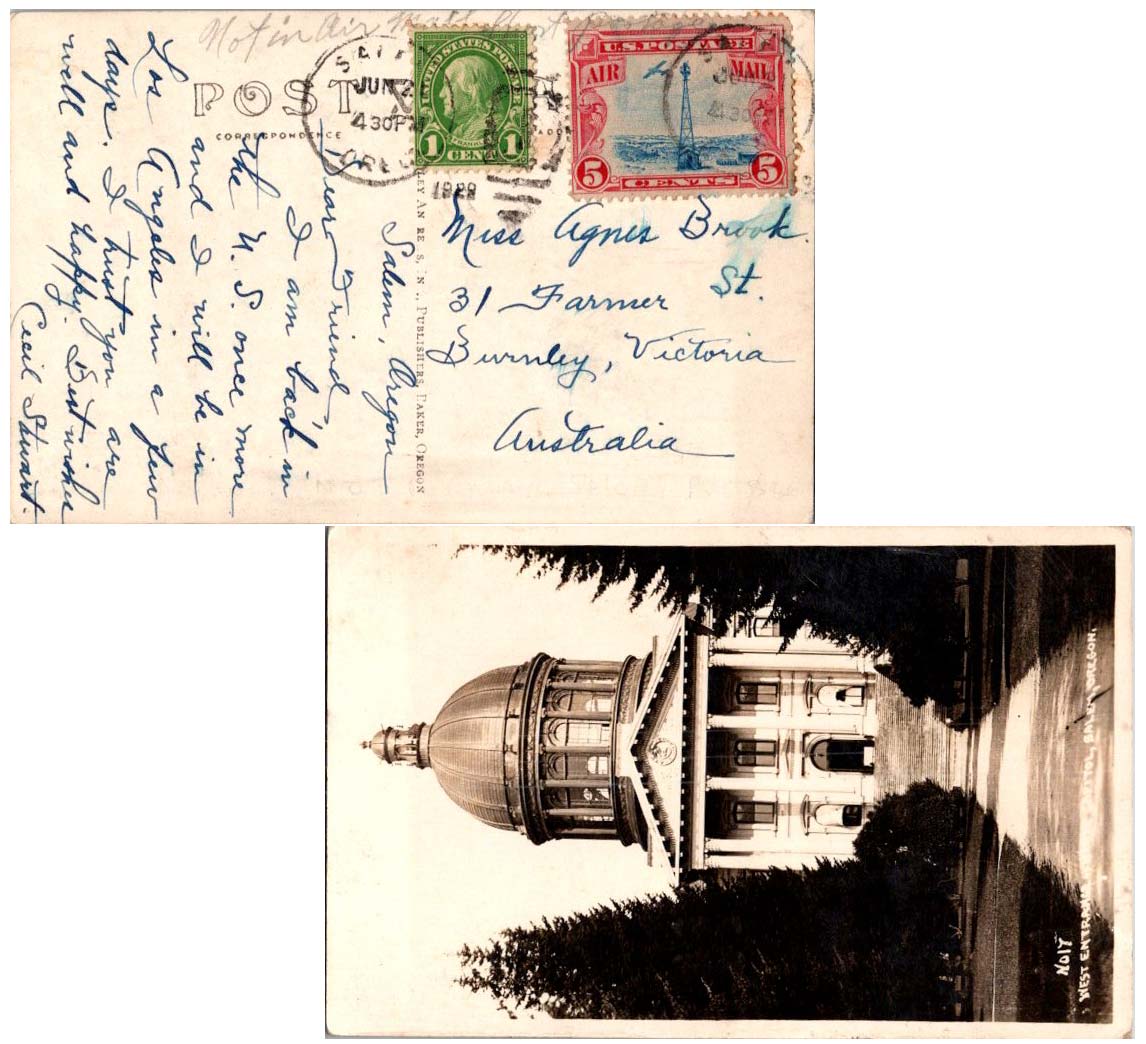 Not in Air Mail
POST
CORRESPONDENCE
SALEM
JUN
4 30 PM
OREG
1929
UNITED STATES POSTAGE
FRANKLIN
1 CENT 1
U.S. POSTAGE
AIR MAIL
5 CENTS 5
4 30
Miss Agnes Brook.
31 Farmer St.
Burnley, Victoria
Australia
PUBLISHERS, BAKER, OREGON
Salem, Oregon
Dear Friend
I am back in
the U. S. once more
and I will be in
Los Angeles in a few
days. I trust you are
well and happy. Best wishes
Cecil Stuart.
NO17
WEST ENTRANCE SALEM, OREGON.